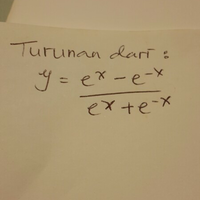 Turunan dari :
y = e^x - e^-x
e^x + e^-x